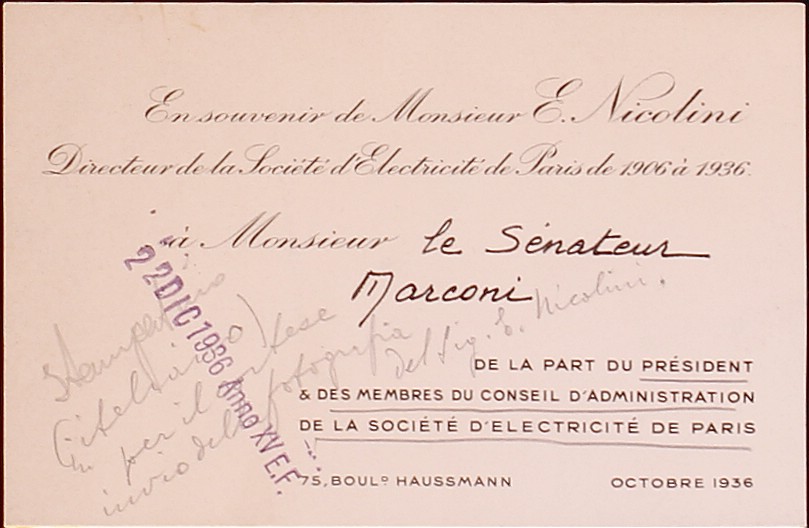 En souvenir de Monsieur E. Nicolini
Directeur de la Société d'Electricité de Paris de 1906 à 1936.
à Monsieur le Sénateur
Marconi
22 DIC 1936 Anno XV E.F.
per il cortese
invio della fotografia
del Sig. E. Nicolini.
DE LA PART DU PRÉSIDENT
& DES MEMBRES DU CONSEIL D'ADMINISTRATION
DE LA SOCIÉTÉ D'ELECTRICITÉ DE PARIS
75, BOULD HAUSSMANN OCTOBRE 1936